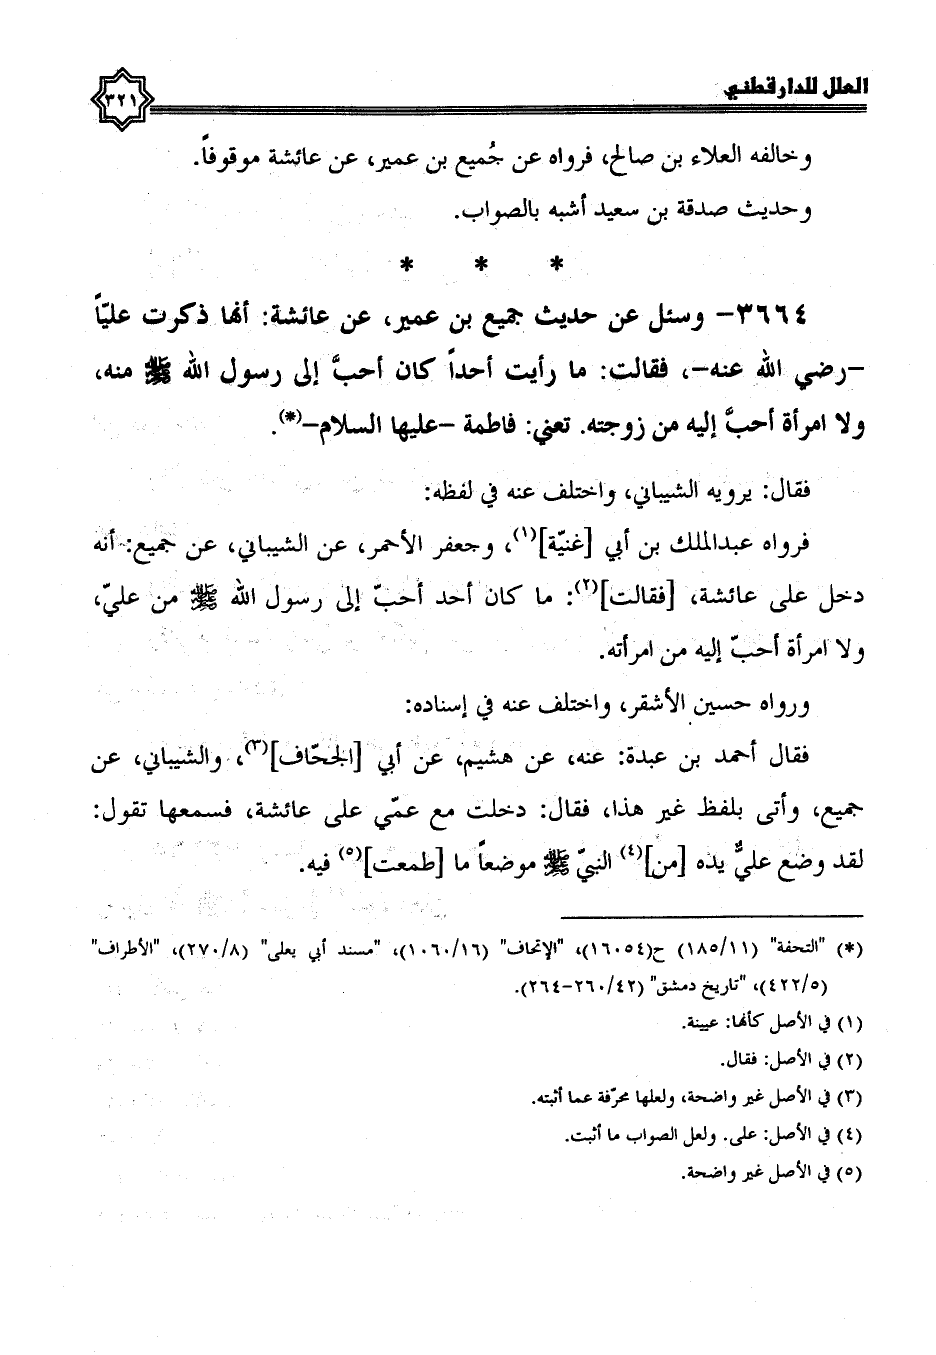 العلل للدارقطني
٣٢١
وخالفه العلاء بن صالح، فرواه عن جُميع بن عمير، عن عائشة موقوفاً.
وحديث صدقة بن سعيد أشبه بالصواب.
* * *
٣٦٦٤- وسئل عن حديث جميع بن عمير، عن عائشة: أنها ذكرت عليّاً
-رضي الله عنه-، فقالت: ما رأيت أحداً كان أحبَّ إلى رسول الله ﷺ منه،
ولا امرأة أحبَّ إليه من زوجته. تعني: فاطمة -عليها السلام-(*).
فقال: يرويه الشيباني، واختلف عنه في لفظه:
فرواه عبدالملك بن أبي [غنيّة](١)، وجعفر الأحمر، عن الشيباني، عن جميع: أنه
دخل على عائشة، [فقالت](٢): ما كان أحد أحبّ إلى رسول الله ﷺ من عليّ،
ولا امرأة أحبّ إليه من امرأته.
ورواه حسين الأشقر، واختلف عنه في إسناده:
فقال أحمد بن عبدة: عنه، عن هشيم، عن أبي [الجحّاف](٣)، والشيباني، عن
جميع، وأتى بلفظ غير هذا، فقال: دخلت مع عمّي على عائشة، فسمعها تقول:
لقد وضع عليٌّ يده [من](٤) النبيّ ﷺ موضعاً ما [طمعت](٥) فيه.
(*) "التحفة" (١٨٥/١١) ح(١٦٠٥٤)، "الإتحاف" (١٠٦٠/١٦)، "مسند أبي يعلى" (٢٧٠/٨)، "الأطراف"
(٤٢٢/٥)، "تاريخ دمشق" (٢٦٠/٤٢-٢٦٤).
(١) في الأصل كأنها: عيينة.
(٢) في الأصل: فقال.
(٣) في الأصل غير واضحة، ولعلها محرّفة عما أثبته.
(٤) في الأصل: على. ولعل الصواب ما أثبت.
(٥) في الأصل غير واضحة.